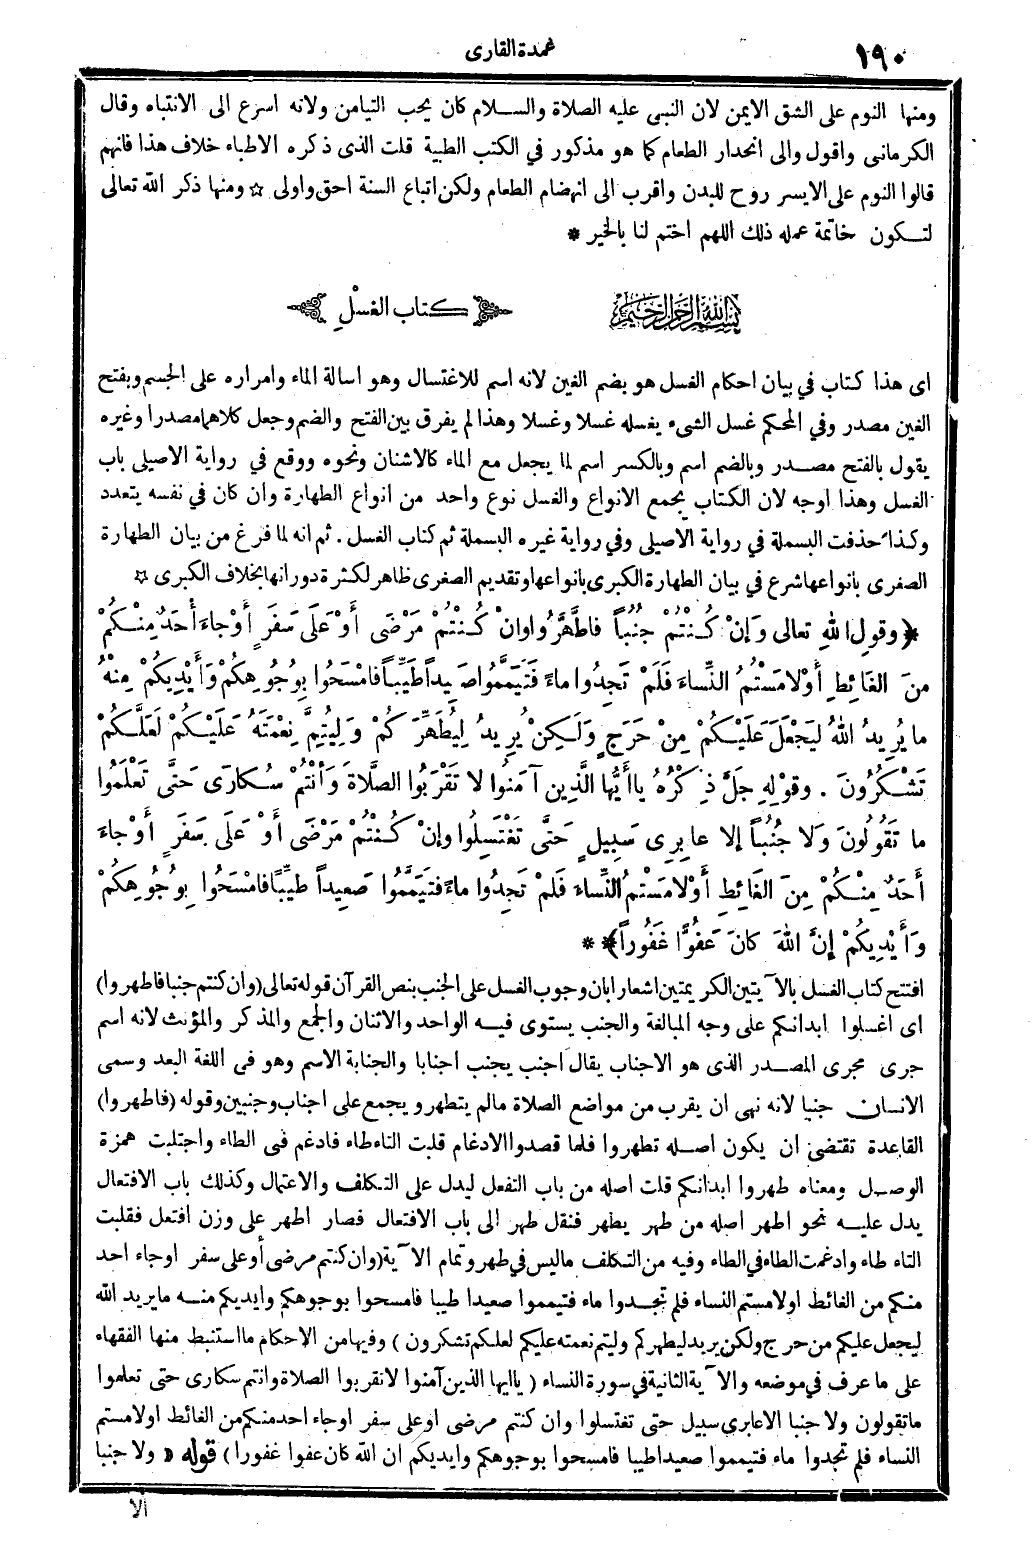 ١٩٠
عمدة القارى
ومنها النوم على الشق الايمن لان النبى عليه الصلاة والسلام كان يحب التيامن ولانه اسرع الى الانتباه وقال
الكرمانى واقول والى انحدار الطعام كما هو مذكور في الكتب الطبية قلت الذى ذكره الاطباء خلاف هذا فانهم
قالوا النوم على الايسر روح للبدن واقرب الى انهضام الطعام ولكن اتباع السنة احق واولى ☆ ومنها ذكر الله تعالى
لتكون خاتمة عمله ذلك اللهم اختم لنا بالخير *
بسم الله الرحمن الرحيم
كتاب الغسل
اى هذا كتاب في بيان احكام الغسل هو بضم الغين لانه اسم للاغتسال وهو اسالة الماء وامراره على الجسم وبفتح
الغين مصدر وفي المحكم غسل الشىء يغسله غسلا وغسلا وهذا لم يفرق بين الفتح والضم وجعل كلاهما مصدرا وغيره
يقول بالفتح مصدر وبالضم اسم وبالكسر اسم لما يجعل مع الماء كالاشنان ونحوه ووقع في رواية الاصيلى باب
الغسل وهذا اوجه لان الكتاب يجمع الانواع والغسل نوع واحد من انواع الطهارة وان كان في نفسه يتعدد
وكذا حذفت البسملة في رواية الاصيلى وفي رواية غيره البسملة ثم كتاب الغسل . ثم انه لما فرغ من بيان الطهارة
الصغرى بانواعها شرع في بيان الطهارة الكبرى بانواعها وتقديم الصغرى ظاهر لكثرة دورانها بخلاف الكبرى ☆
﴿ وقولِ اللهِ تعالى وَإنْ كُنْتُمْ جُنُباً فاطَّهَّرُوا وانْ كُنْتُمْ مَرْضَى أوْ عَلَى سَفَرٍ أوْ جاءَ أحَدٌ مِنْكُمْ
منَ الغَائِطِ أوْ لامَسْتُمُ النِّساءَ فَلَمْ تَجِدُوا ماءً فَتَيَمَّمُوا صَعِيداً طَيِّباً فامْسَحُوا بِوُجُوهِكُمْ وَأيْدِيكُمْ مِنْهُ
ما يُرِيدُ اللهُ لِيَجْعَلَ عَلَيْكُمْ مِنْ حَرَجٍ وَلَكِنْ يُرِيدُ لِيُطَهِّرَكُمْ وَلِيُتِمَّ نِعْمَتَهُ عَلَيْكُمْ لَعَلَّكُمْ
تَشْكُرُونَ . وقوْلِهِ جَلَّ ذِكْرُهُ ياأيُّها الَّذِينَ آمَنُوا لا تَقْرَبُوا الصَّلاَةَ وَأنْتُمْ سُكارَى حَتَّى تَعْلَمُوا
ما تَقُولُونَ وَلا جُنُباً إلا عابِرِى سَبِيلٍ حَتَّى تَغْتَسِلُوا وإنْ كُنْتُمْ مَرْضَى أوْ عَلَى سَفَرٍ أوْ جاءَ
أحَدٌ مِنْكُمْ مِنَ الغَائِطِ أوْ لامَسْتُمُ النِّساءَ فَلَمْ تَجِدُوا ماءً فَتيَمَّمُوا صَعِيداً طيِّباً فامْسَحُوا بِوُجُوهِكُمْ
وَأيْدِيكُمْ إنَّ اللهَ كانَ عَفُوًّا غَفُوراً ﴾ * *
افتتح كتاب الغسل بالآيتين الكريمتين اشعارا بان وجوب الغسل على الجنب بنص القرآن قوله تعالى (وان كنتم جنبا فاطهروا)
اى اغسلوا ابدانكم على وجه المبالغة والجنب يستوى فيه الواحد والاثنان والجمع والمذكر والمؤنث لانه اسم
جرى مجرى المصدر الذى هو الاجناب يقال اجنب يجنب اجنابا والجنابة الاسم وهو فى اللغة البعد وسمى
الانسان جنبا لانه نهى ان يقرب من مواضع الصلاة مالم يتطهر ويجمع على اجناب وجنبين وقوله (فاطهروا)
القاعدة تقتضى ان يكون اصله تطهروا فلما قصدوا الادغام قلبت التاء طاء فادغم فى الطاء واجتلبت همزة
الوصل ومعناه طهروا ابدانكم قلت اصله من باب التفعل ليدل على التكلف والاعتمال وكذلك باب الافتعال
يدل عليه نحو اطهر اصله من طهر يطهر فنقل طهر الى باب الافتعال فصار اطهر على وزن افتعل فقلبت
التاء طاء وادغمت الطاء في الطاء وفيه من التكلف ما ليس في طهر وتمام الآية (وان كنتم مرضى أو على سفر اوجاء احد
منكم من الغائط اولامستم النساء فلم تجدوا ماء فتيمموا صعيدا طيبا فامسحوا بوجوهكم وايديكم منه مايريد الله
ليجعل عليكم من حرج ولكن يريد ليطهركم وليتم نعمته عليكم لعلكم تشكرون ) وفيها من الاحكام ما استنبط منها الفقهاء
على ما عرف في موضعه والآية الثانية في سورة النساء ( ياايها الذين آمنوا لاتقربوا الصلاة وانتم سكارى حتى تعلموا
ماتقولون ولا جنبا الا عابرى سبيل حتى تغتسلوا وان كنتم مرضى او على سفر اوجاء احد منكم من الغائط اولامستم
النساء فلم تجدوا ماء فتيمموا صعيدا طيبا فامسحوا بوجوهكم وايديكم ان الله كان عفوا غفورا ) قوله « ولا جنبا
الا